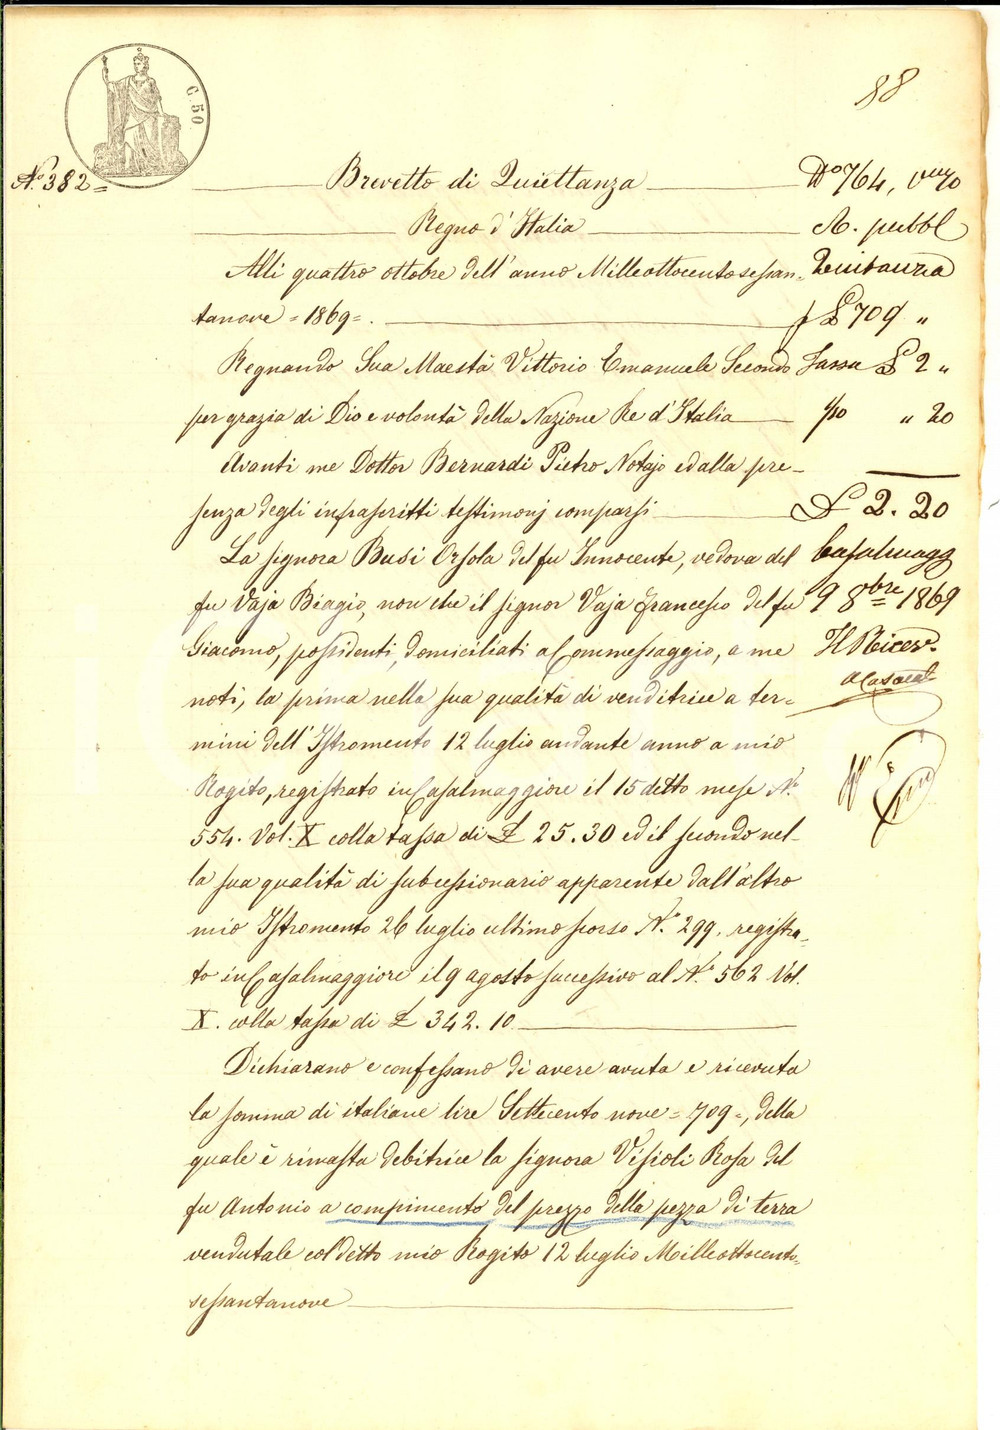 88
C. 50
N.º 382 =
Brevetto di Quiettanza
Regno d'Italia
Alli quattro ottobre dell'anno Milleottocentosessan-
tanove = 1869 = .
Regnando Sua Maestà Vittorio Emanuele Secondo
per grazia di Dio e volontà della Nazione Re d'Italia
Avanti me Dottor Bernardi Pietro Notajo ed alla pre-
senza degli infrascritti testimonj comparsi
La signora Busi Orsola del fu Innocente, vedova del
fu Vaja Biagio, non che il signor Vaja Francesco del fu
Giacomo, possidenti, domiciliati a Commessaggio, a me
noti, la prima nella sua qualità di venditrice a ter-
mini dell'Istromento 12 luglio andante anno a mio
Rogito, registrato in Casalmaggiore il 15 detto mese N.º
554. Vol. X colla tassa di £ 25.30 ed il secondo nel-
la sua qualità di subcessionario apparente dall'altro
mio Istromento 26 luglio ultimo scorso N.º 299, registra-
to in Casalmaggiore il 9 agosto successivo al N.º 562 Vol.
X. colla tassa di £ 342.10
Dichiarano e confessano di avere avuta e ricevuta
la somma di italiane lire Settecento nove = 709 =, della
quale è rimasta debitrice la signora Visioli Rosa del
fu Antonio a compimento del prezzo della pezza di terra
vendutale col detto mio Rogito 12 luglio Milleottocento-
sessantanove
Nº 764,
A. pubbl
Quitanza
p £ 709 "
Tassa £ 2 "
" 20
£ 2.20
Casalmagg
9 8bre 1869
Il Ricev.